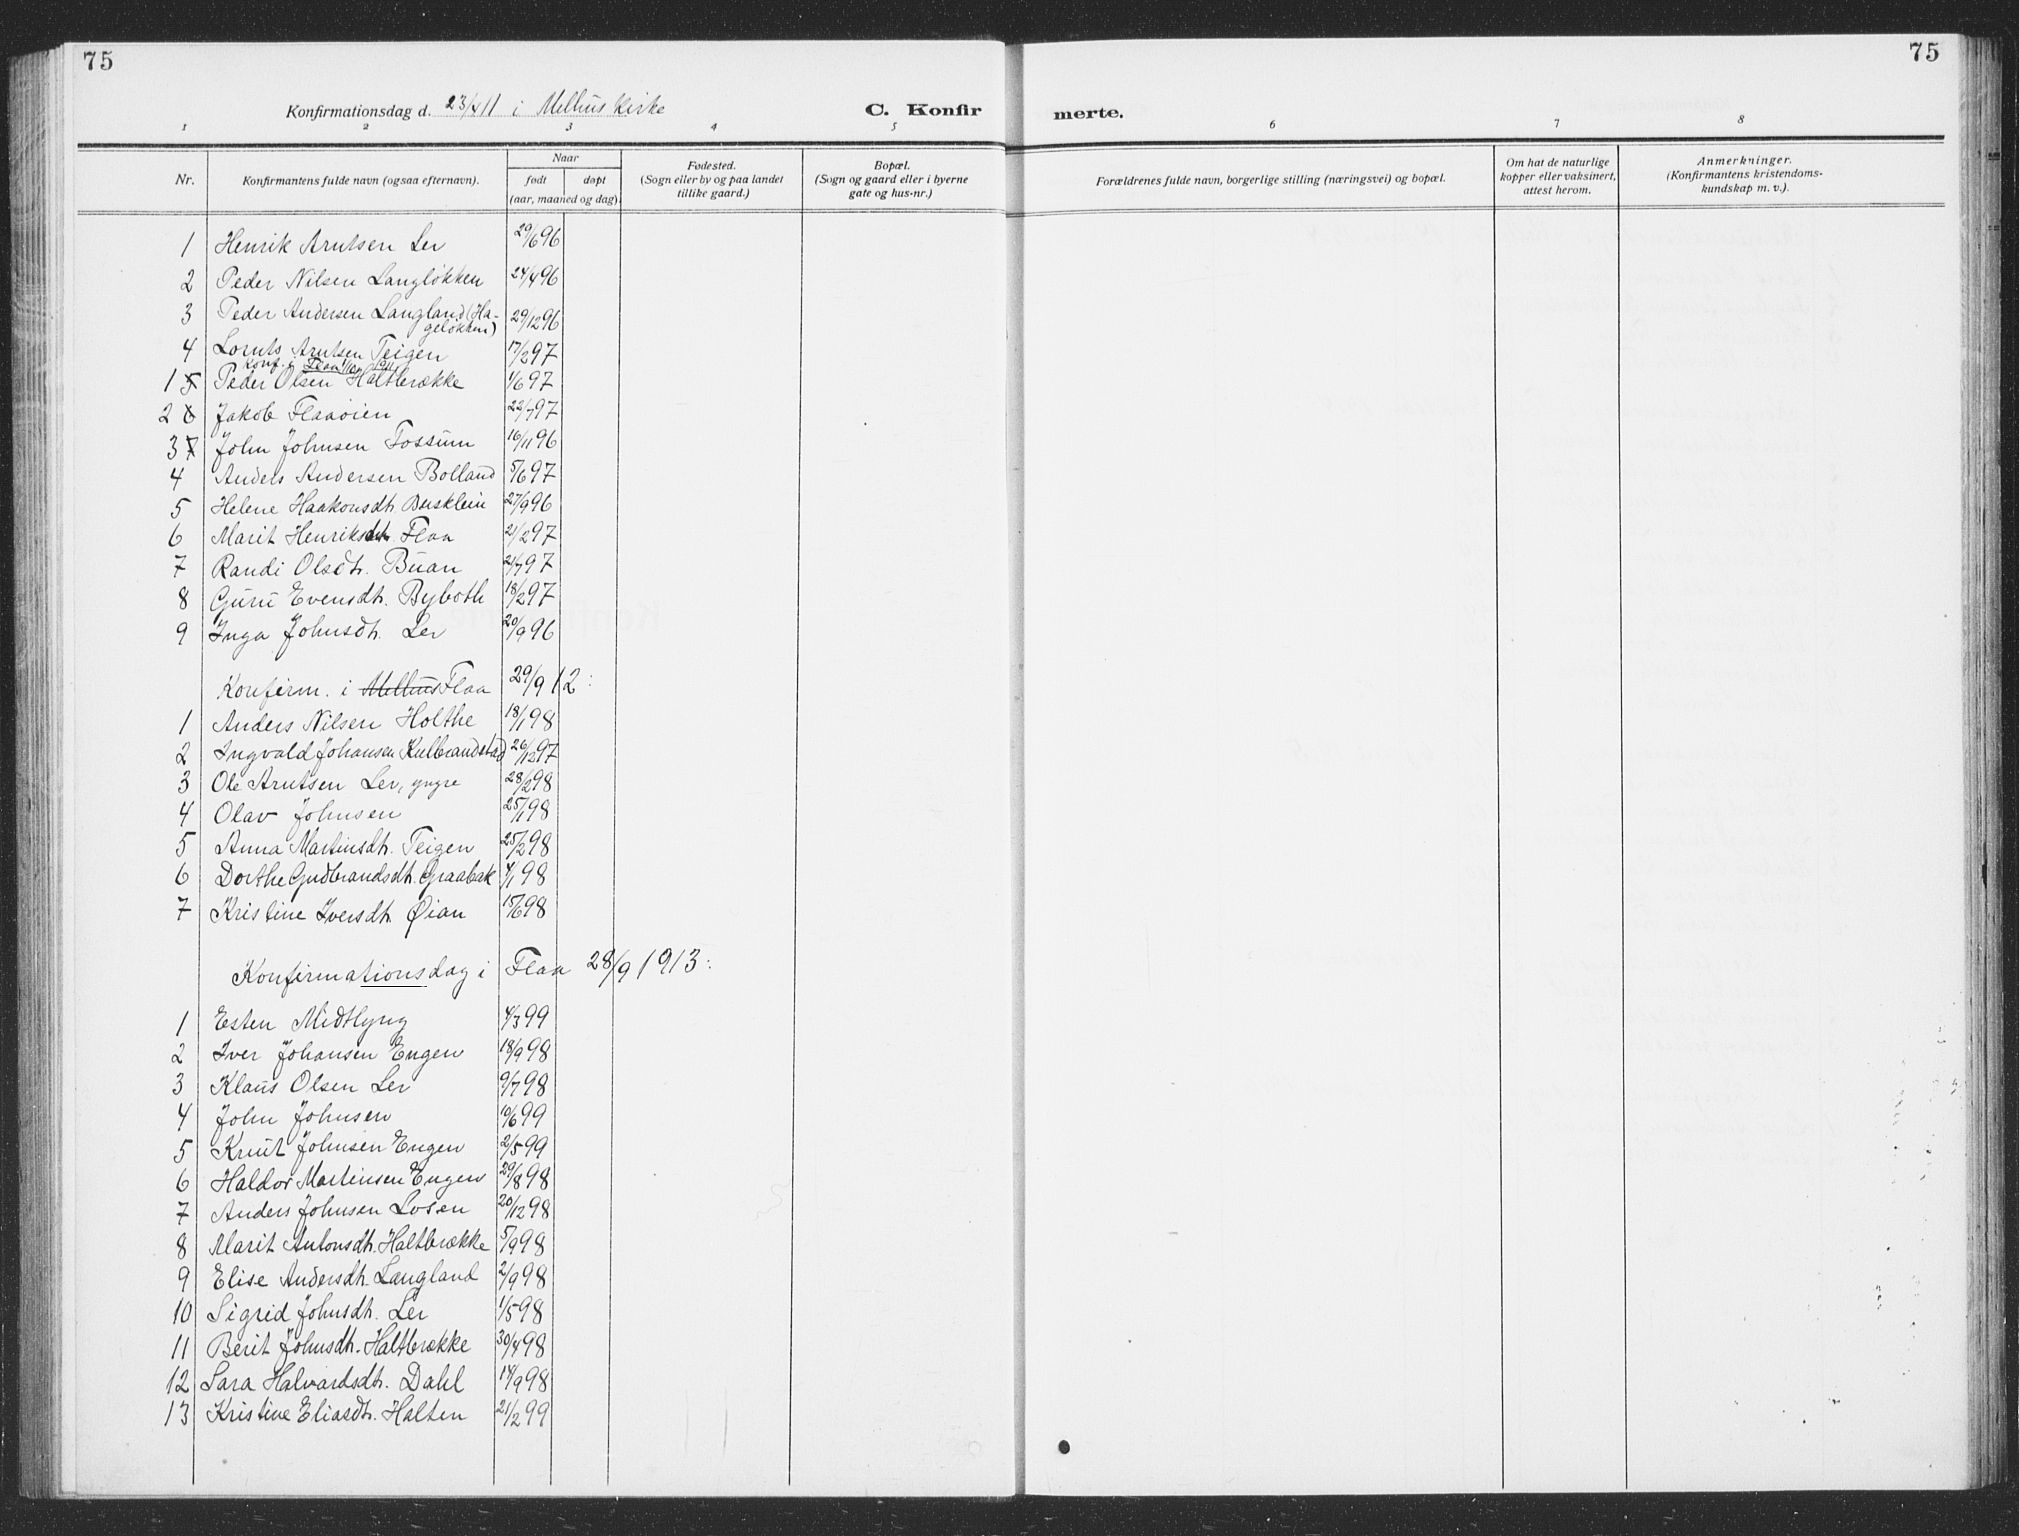 75
75
Konfirmationsdag d. 23/4 11 i Melhus kirke
C. Konfir
merte.
1 2 3 4 5 6 7 8
Nr.
Konfirmantens fulde navn (ogsaa efternavn).
Naar
født døpt
(aar, maaned og dag).
Fødested.
(Sogn eller by og paa landet
tillike gaard.)
Bopæl.
(Sogn og gaard eller i byerne
gate og hus-nr.)
Forældrenes fulde navn, borgerlige stilling (næringsvei) og bopæl.
Om hat de naturlige
kopper eller vaksinert,
attest herom.
Anmerkninger.
(Konfirmantens kristendoms-
kundskap m. v.).
1 Henrik Arntsen Ler 29/6 96
2 Peder Nilsen Langløkken 24/4 96
3 Peder Andersen Langland (Ha-
geløkken) 29/12 96
4 Lornts Arntsen Teigen 17/2 97
Konf. i Flaa 1911
1 5 Peder Olsen Haltbrække 1/6 97
2 6 Jakob Flaaøien 22/7 97
3 7 John Johnsen Fossum 16/11 96
4 Anders Andersen Bolland 5/6 97
5 Helene Haakonsdt. Busklein 27/9 96
6 Marit Henriksdt. Flaa 21/2 97
7 Randi Olsdt. Buan 21/7 97
8 Guru Evensdt. Byboth 18/2 97
9 Inga Johnsdt. Ler 20/9 96
Konfirm. i Melhus Flaa 29/9 12:
1 Anders Nilsen Holthe 18/1 98
2 Ingvald Johansen Kulbrandstad 26/12 97
3 Ole Arntsen Ler, yngre 28/2 98
4 Olav Johnsen 25/1 98
5 Anna Martinsdt. Teigen 25/2 98
6 Dorthe Gudbrandsdt. Graabak 4/1 98
7 Kristine Iversdt. Øian 15/6 98
Konfirmationsdag i Flaa 28/9 1913:
1 Esten Midtlyng 4/3 99
2 Iver Johansen Engen 18/9 98
3 Klaus Olsen Ler 9/7 98
4 John Johnsen 10/6 99
5 Knut Johnsen Engen 2/5 99
6 Haldor Martinsen Engen 29/8 98
7 Anders Johnsen Losen 20/12 98
8 Marit Antonsdt. Haltbrække 5/9 98
9 Elise Andersdt. Langland 2/9 98
10 Sigrid Johnsdt. Ler 1/5 98
11 Berit Johnsdt. Haltbrække 30/4 98
12 Sara Halvardsdt. Dahl 14/9 98
13 Kristine Eliasdt. Halten 21/2 99